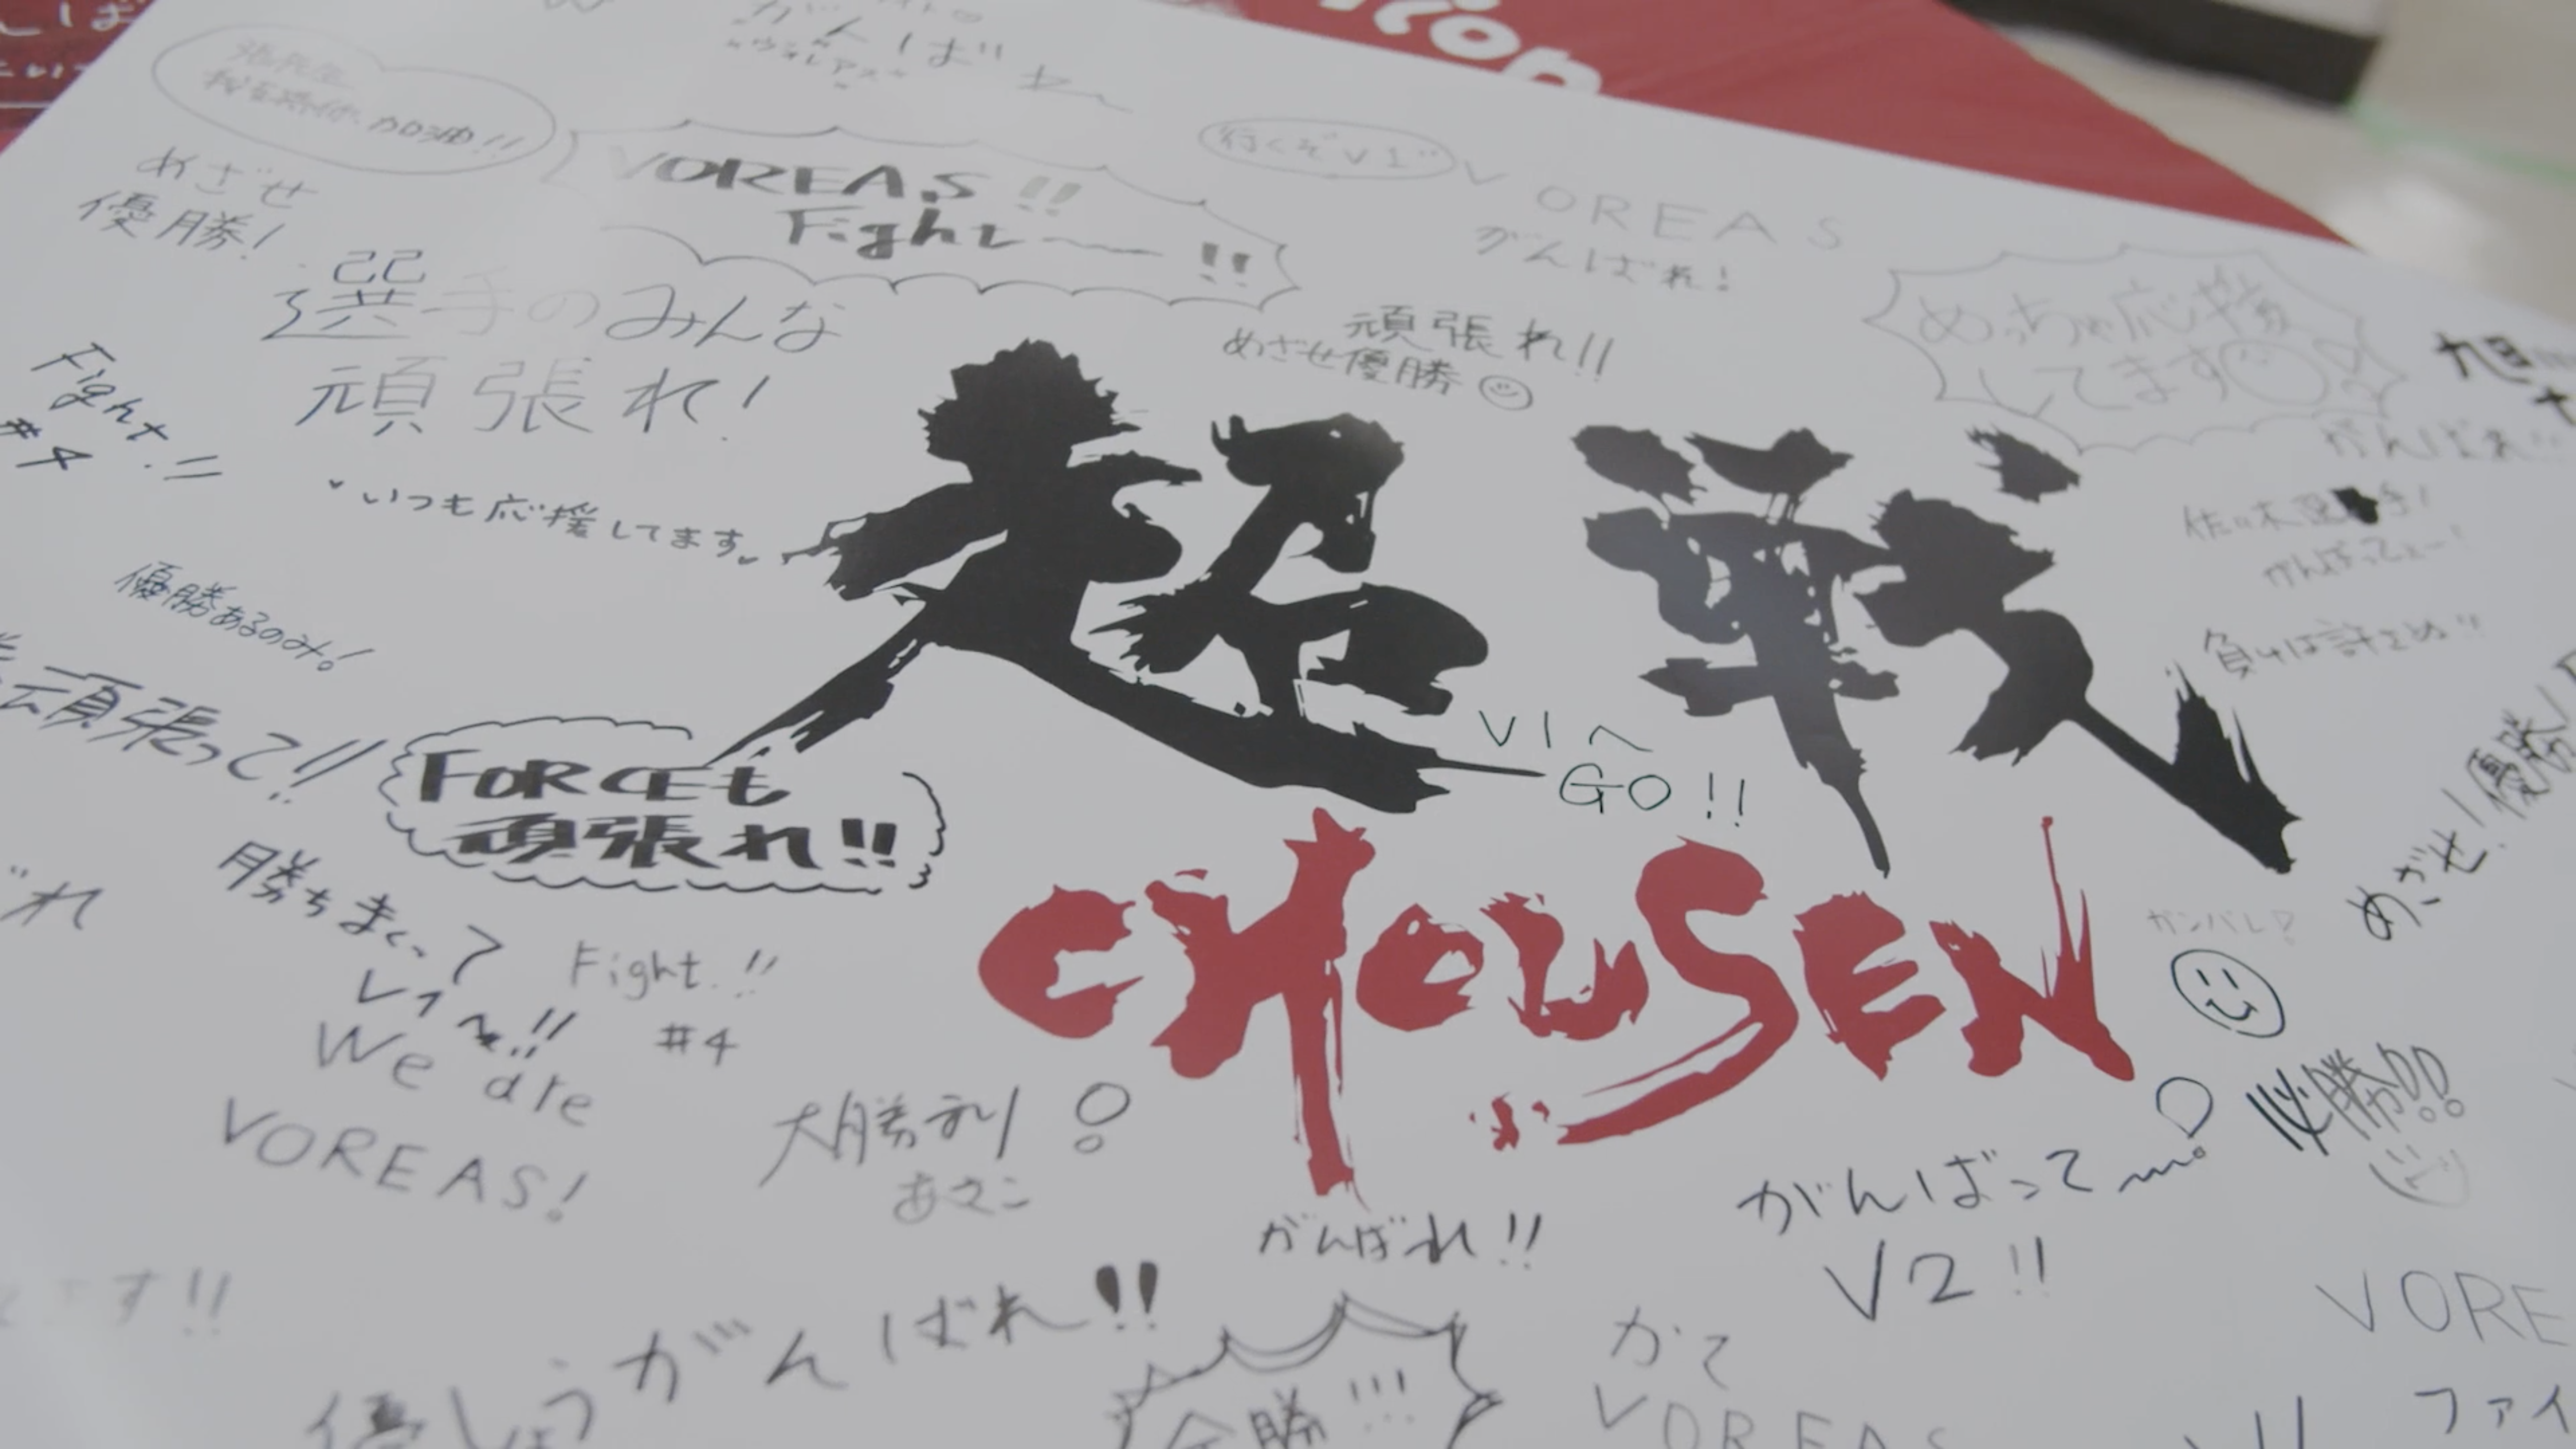 がんばれ
加油!!
行くぞV1
めざせ
優勝!
VOREAS!!
Fight〜!!
VOREAS
がんばれ!
選手のみんな
頑張れ!
頑張れ!!
めざせ優勝
めっちゃ応援
してます
旭
Fight.!!
#4
がんばれ!!
いつも応援してます
超戦
優勝あるのみ!
負けは許さぬ!!
頑張って!!
V1へ
GO!!
FORCEも
頑張れ!!
めざせ!優勝!
CHOUSEN
ガンバレ!
勝ちまくって
Fight.!!
#4
We are
VOREAS!
大勝利!
必勝!!
がんばって〜!
V2!!
がんばれ!!
ます!!
優しょうがんばれ!!
かて
VOREAS
VORE
ファイ
勝!!!